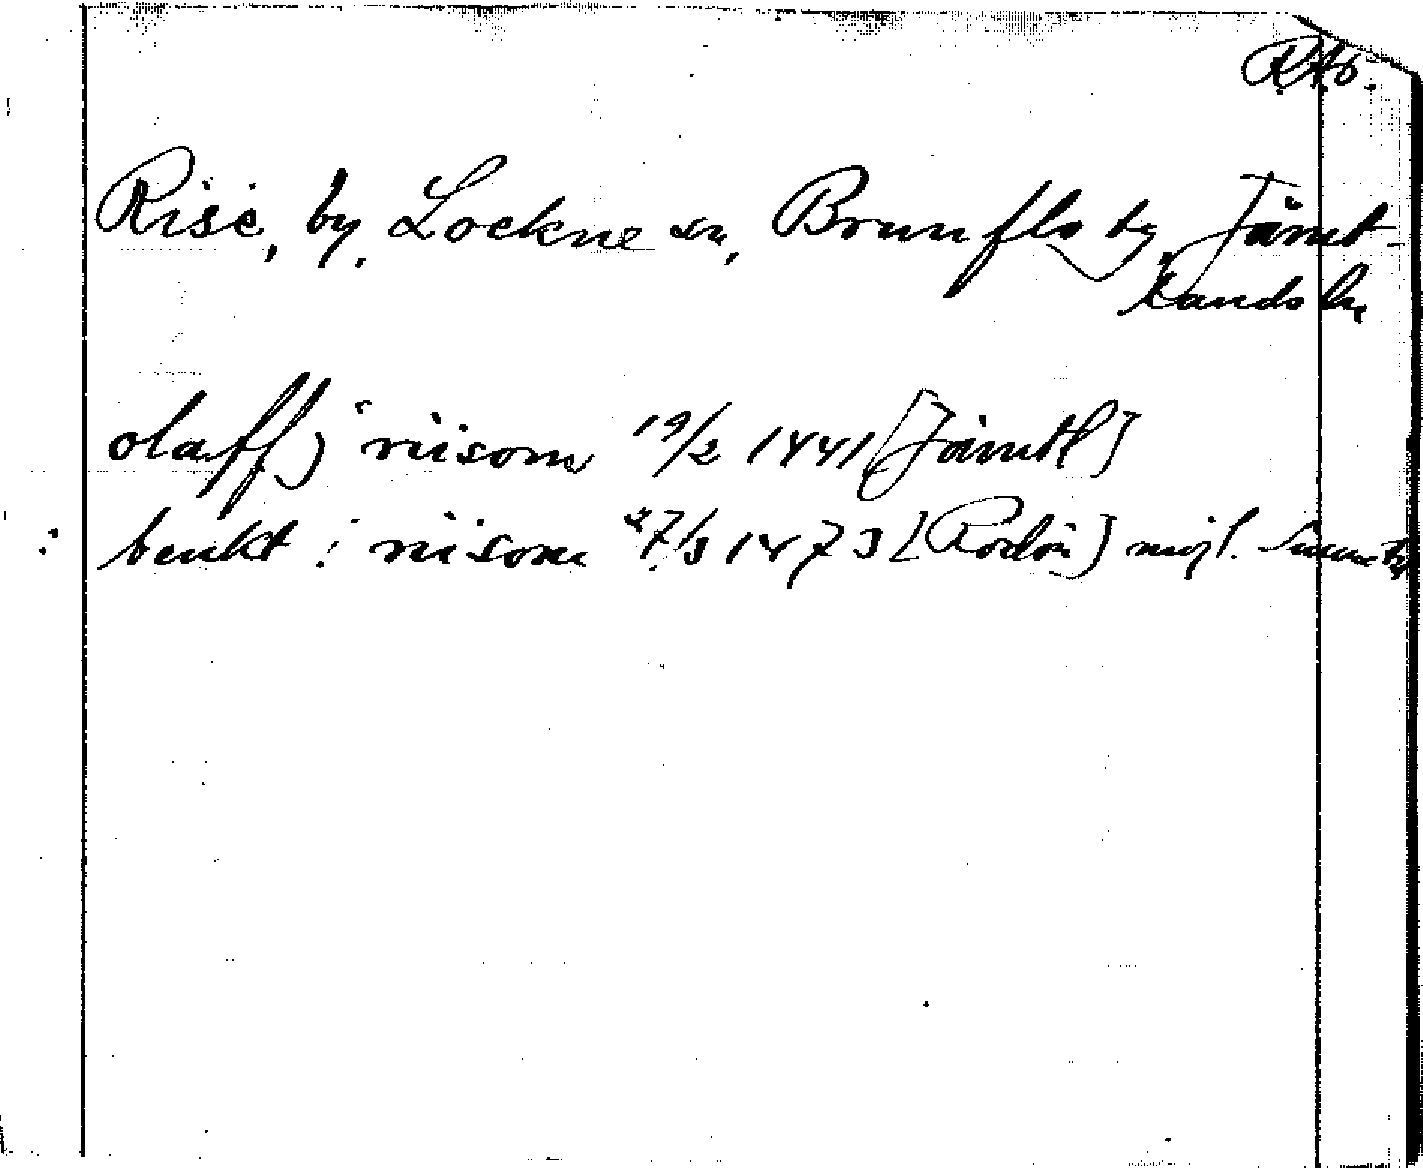 RAp.
Rise, by, Lockne sn, Brunflo tg, Jämt-
lands län
olaff j riisom 19/2 1441 [Jämtl]
benkt i riisom 27/3 1473 [Rödön] möjl.